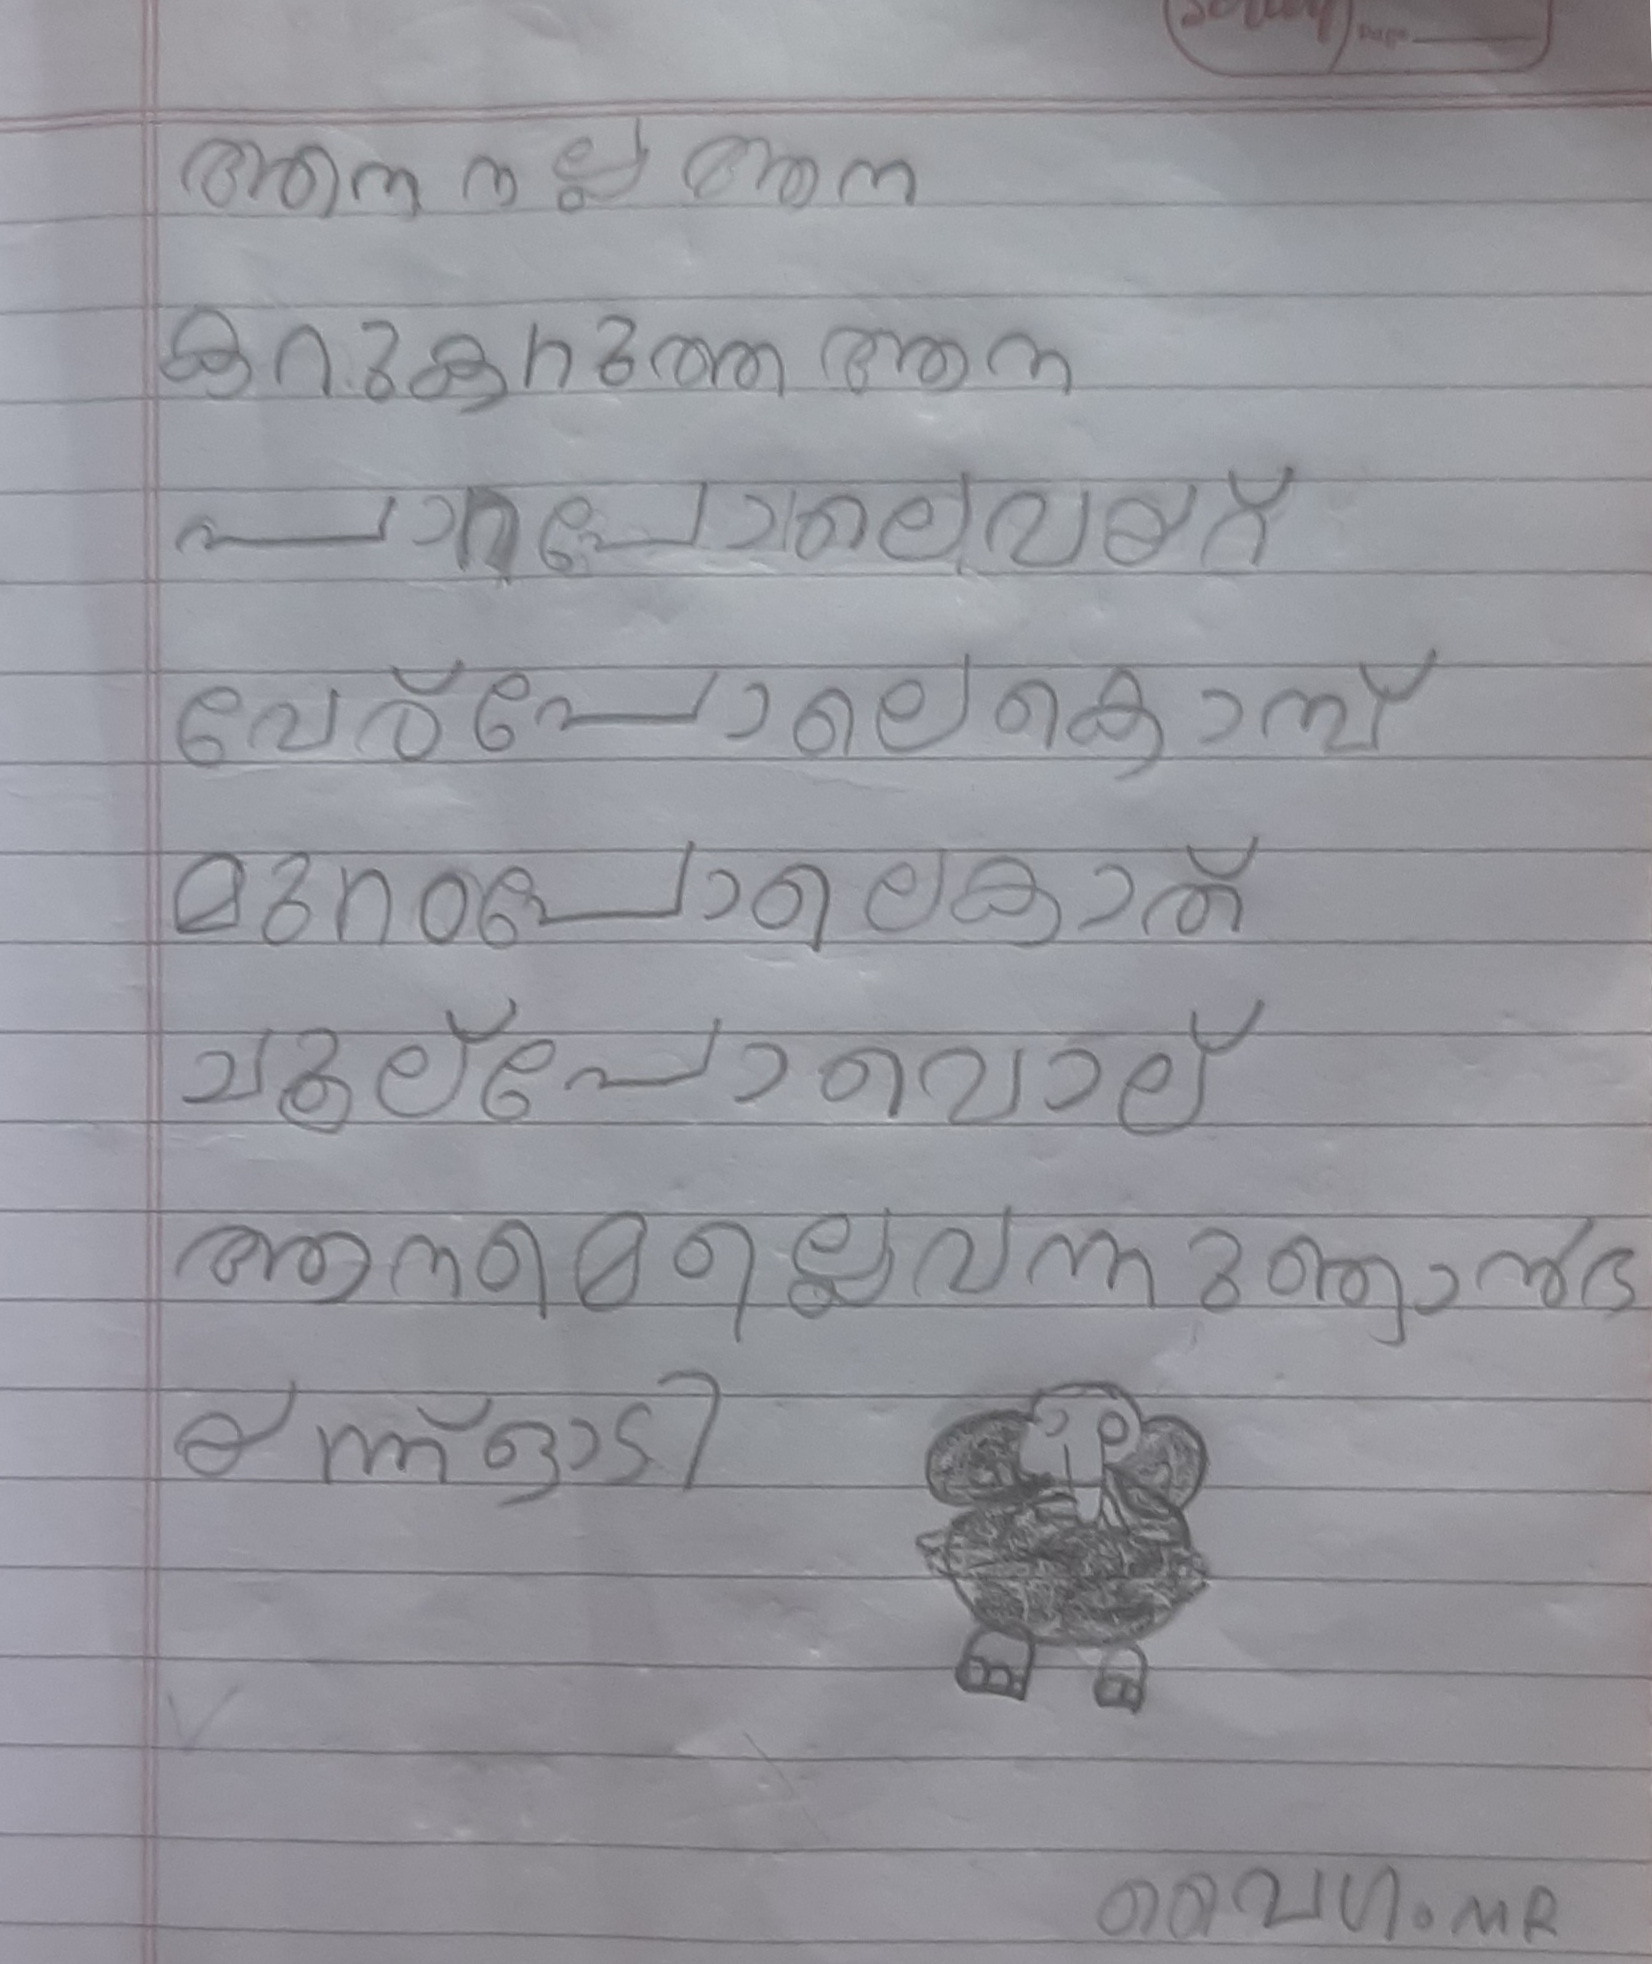 ആന നല്ല ആന
കറുകറുത്ത ആന
പാറപോലെവയറ്
വേര്പോലെകൊമ്പ്
മുറംപോലെകാത്
ചൂല്പോവൊല്
ആനമെല്ലെവന്നുഞാൻഭ
യന്ന്ഓടി
വൈഗ.MR